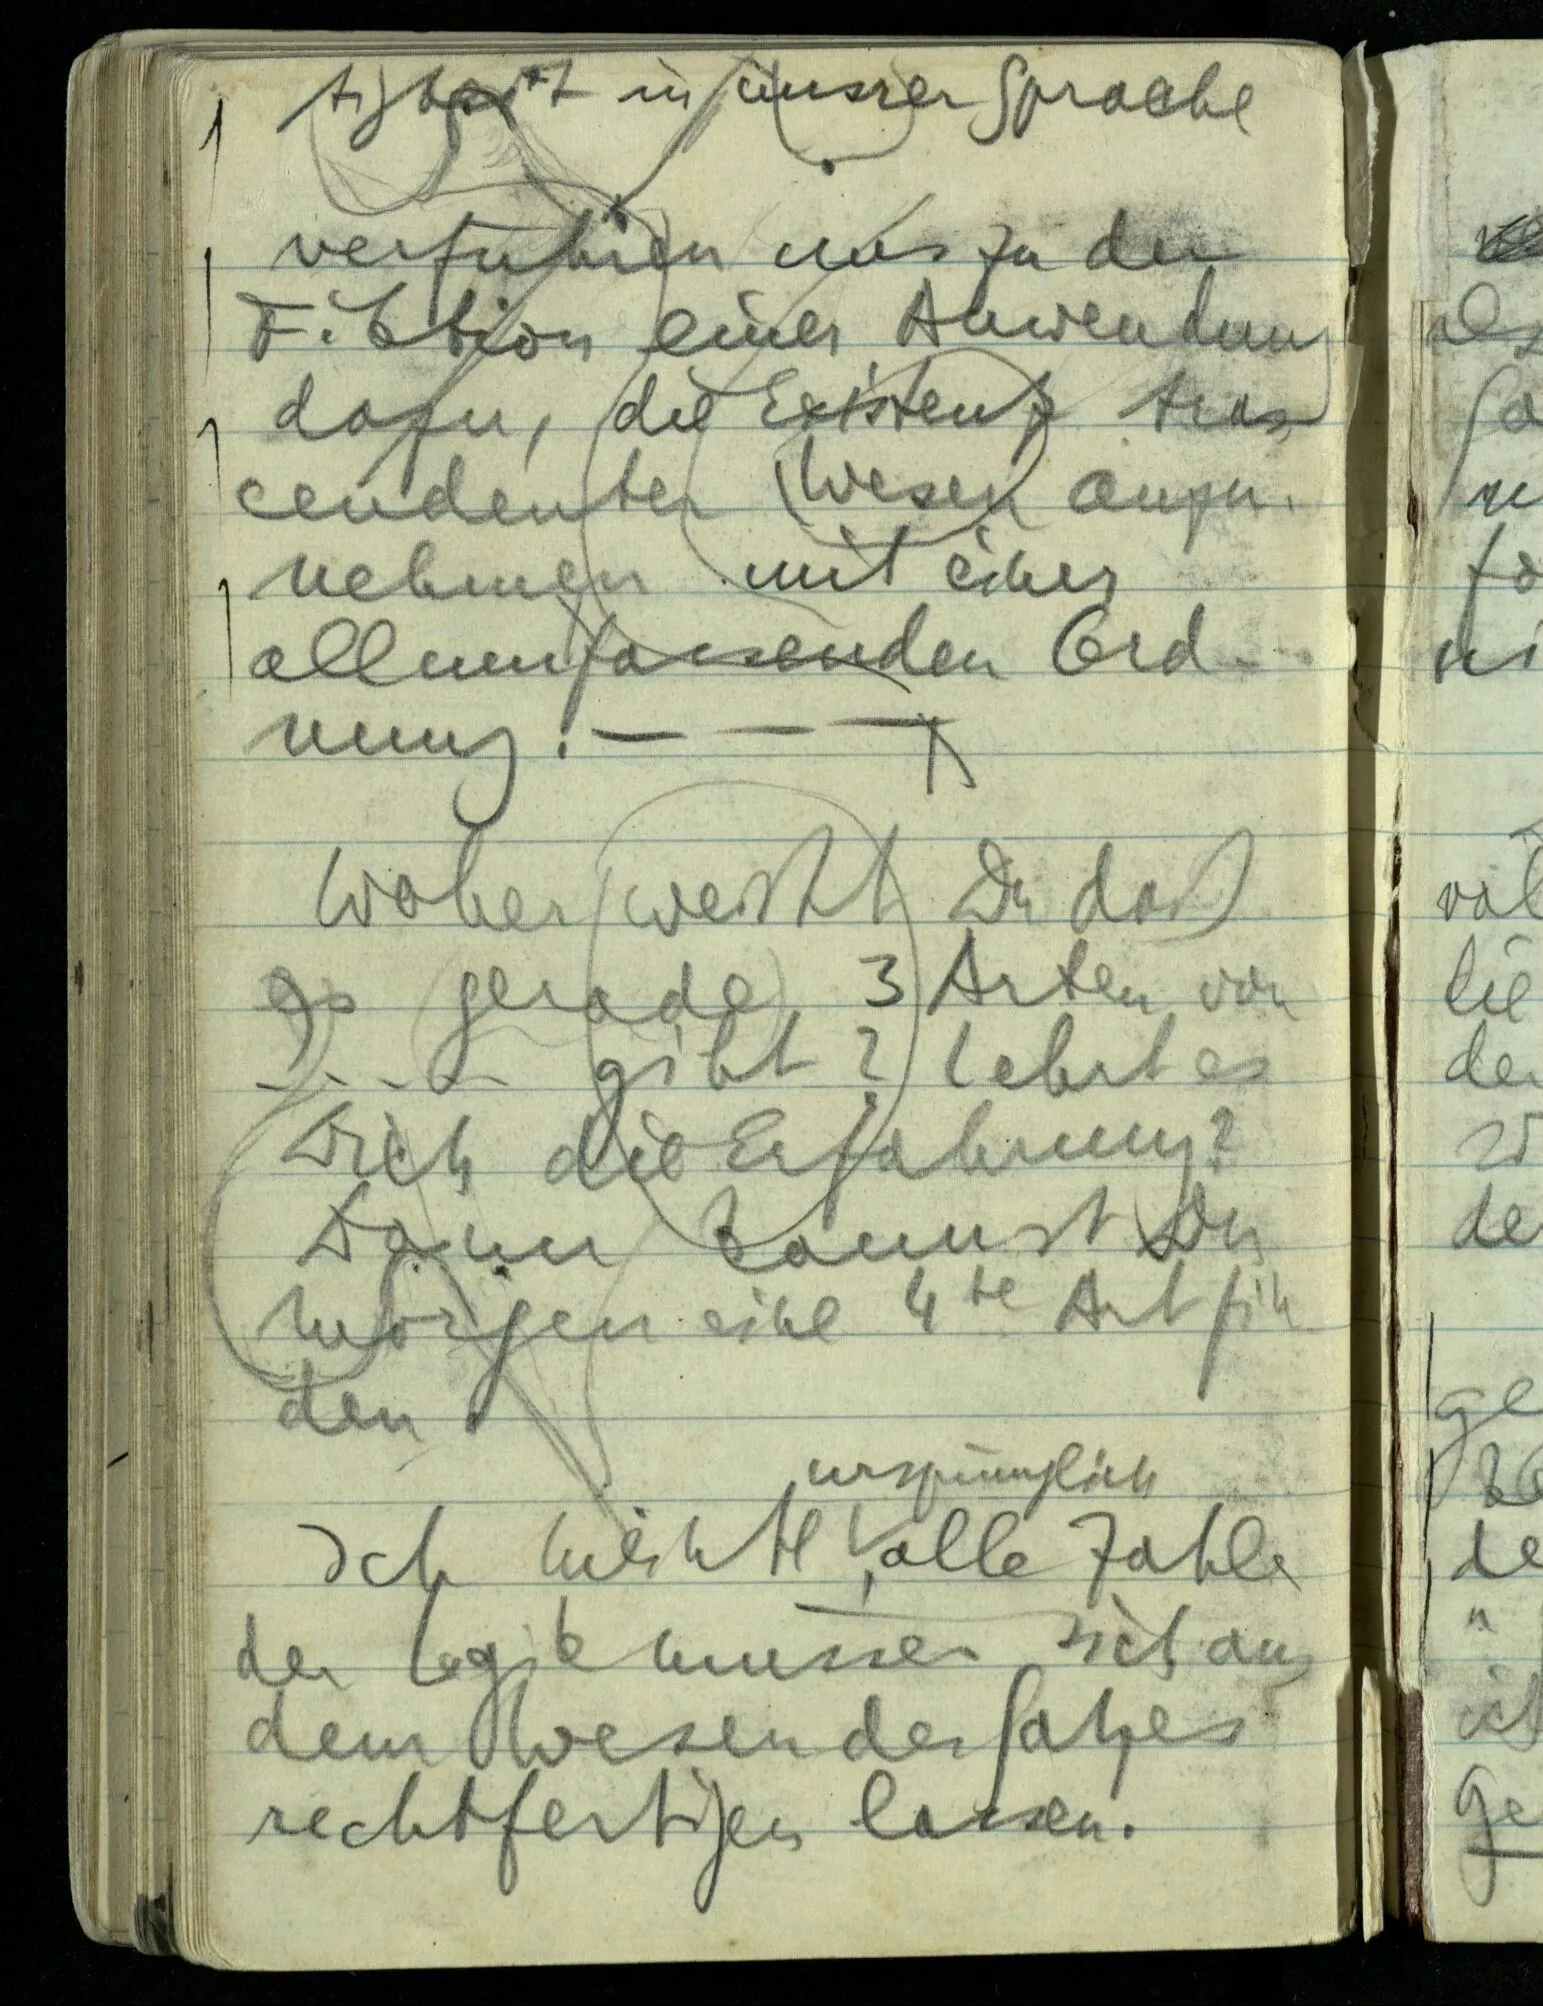 tigkeit in unsrer Sprache
verführen uns zu der
Fiktion einer Anwendung
dafür, die Existenz tras
cendenter Wesen anzu
nehmen mit einer
allumfassenden Ord
nung. — — —
Woher weißt Du daß
es gerade 3 Arten von
..... gibt? Lehrt es
Dich die Erfahrung?
Dann kannst Du
morgen eine 4te Art fin
den.
ursprünglich
Ich meinte alle Zahlen
der Logik müssen sich aus
dem Wesen des Satzes
rechtfertigen lassen.